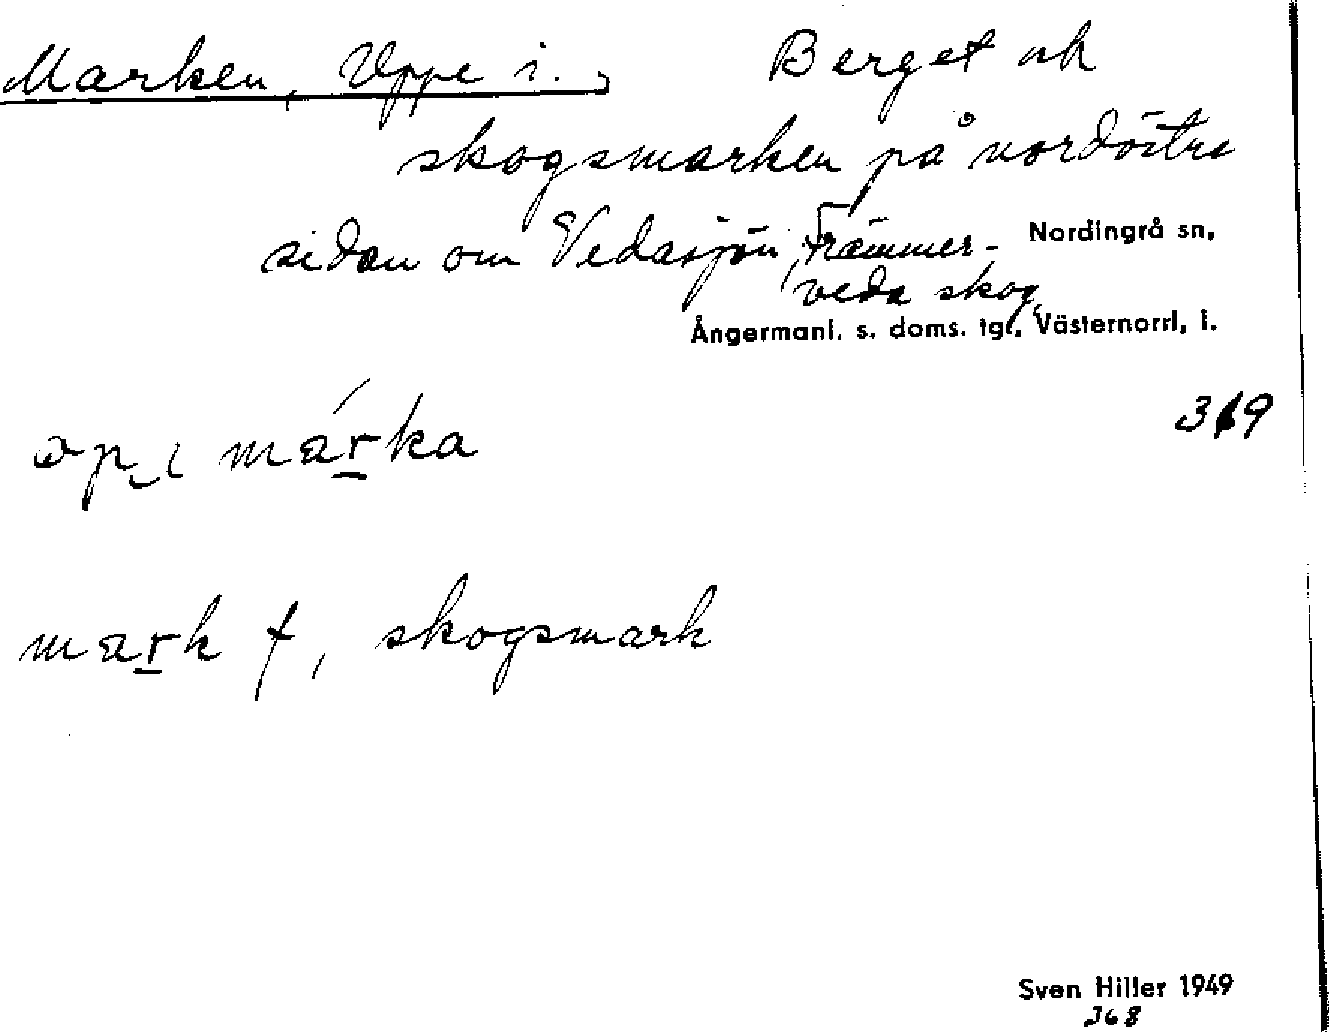 Marken, Uppe i. Berget ok
skogsmarken på nordöstra
sidan om Vedasjön, Främmer-
veda skog
Nordingrå sn,
Ångermanl. s. doms. tgl, Västernorrl. l.
319
márka
mark f, skogsmark
Sven Hiller 1949
368